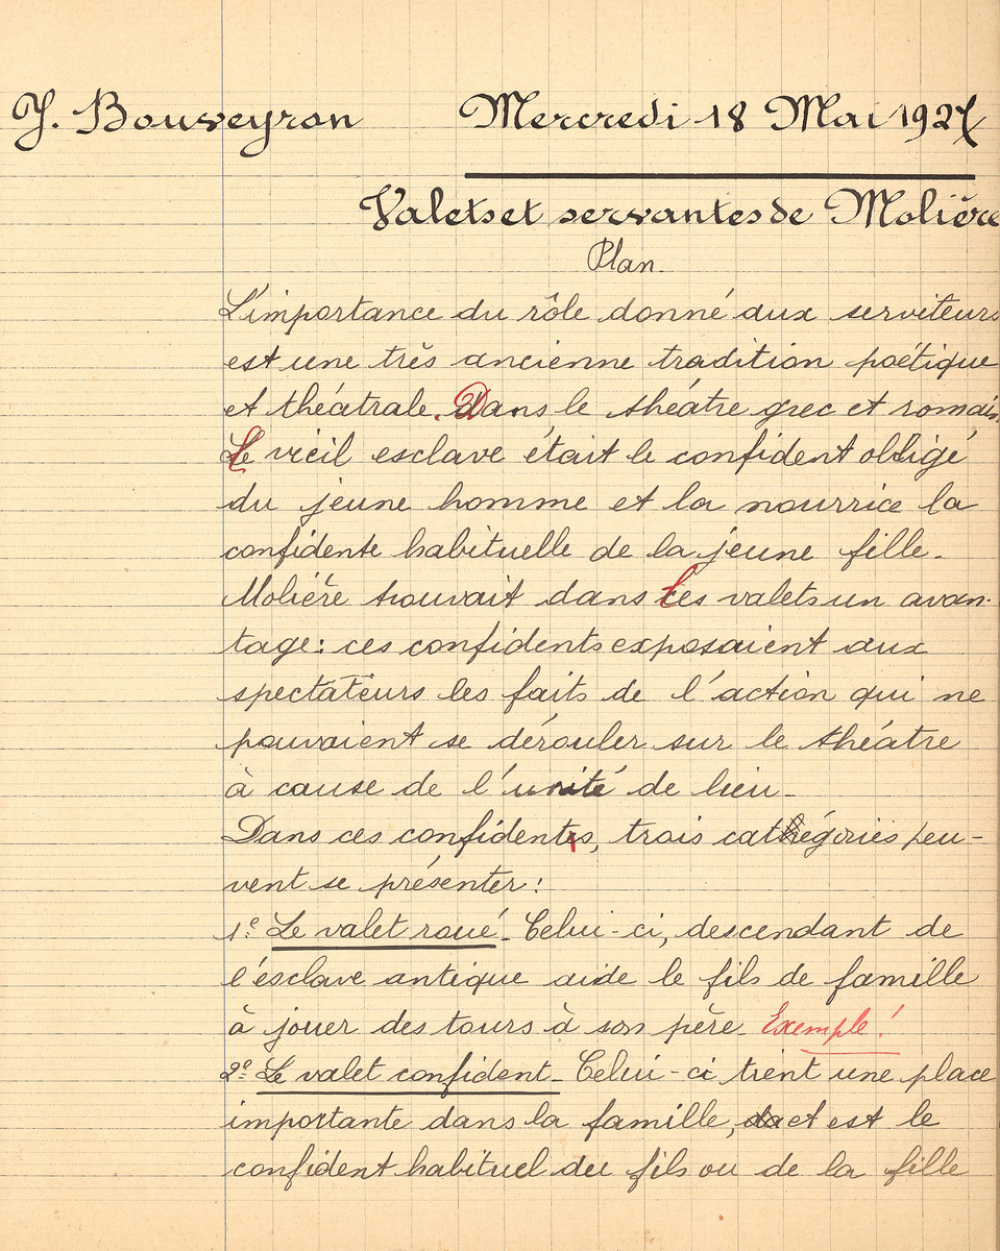 J. Bouveyron Mercredi 18 Mai 1927
Valets et servantes de Molière
Plan.
L'importance du rôle donné aux serviteurs
est une très ancienne tradition poétique
et théatrale. Dans le théatre grec et romain.
Le vieil esclave était le confident obligé
du jeune homme et la nourrice la
confidente habituelle de la jeune fille.
Molière trouvait dans les valets un avan-
tage: ces confidents exposaient aux
spectateurs les faits de l'action qui ne
pouvaient se dérouler sur le théatre
à cause de l'unité de lieu.
Dans ces confidents, trois catégories peu-
vent se présenter:
1º Le valet roué. Celui-ci, descendant de
l'esclave antique aide le fils de famille
à jouer des tours à son père. Exemple!
2º Le valet confident. Celui-ci tient une place
importante dans la famille, et est le
confident habituel du fils ou de la fille